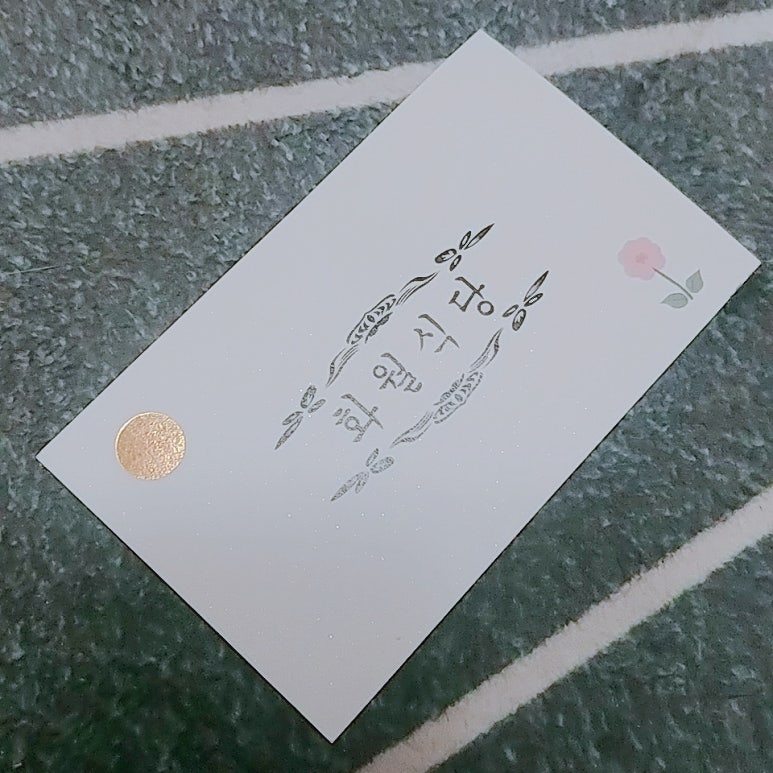 화월식당